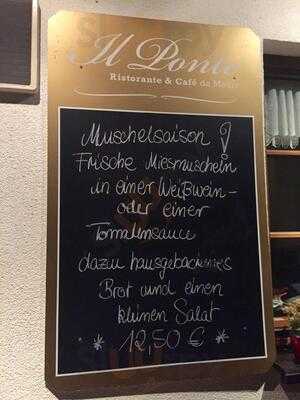 Il Ponte
Ristorante & Café da
Muschelsaison!
Frische Miesmuscheln
in einer Weißwein-
oder einer
Tomatensauce
dazu hausgebackenes
Brot und einen
kleinen Salat
* 12,50 € *